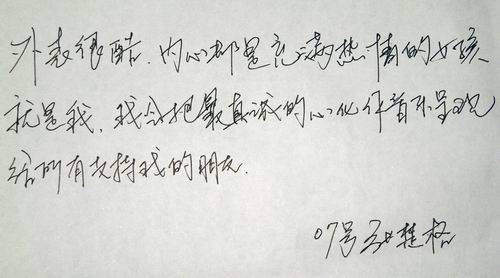 外表很酷，内心都是充满热情的女孩、
就是我，我会把最真诚的心化作音乐呈现
给所有支持我的朋友.
07号 楚格